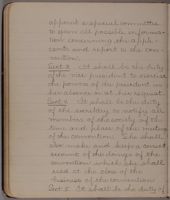 appoint a special committee
to gain all possible informa-
tion concerning the appli-
cants and report to the con-
vention.
Sect 3. It shall be the duty
of the vice president to exercise
the powers of the president in
her absence or at her request.
Sect 4. It shall be the duty
of the secretary to notify all
members of the society of the
time and place of the meeting
of the Convention. She shall
also make and keep a correct
account of the doings of the
convention which she shall
read at the close of the
business of the convention.
Sect 5. It shall be the duty of